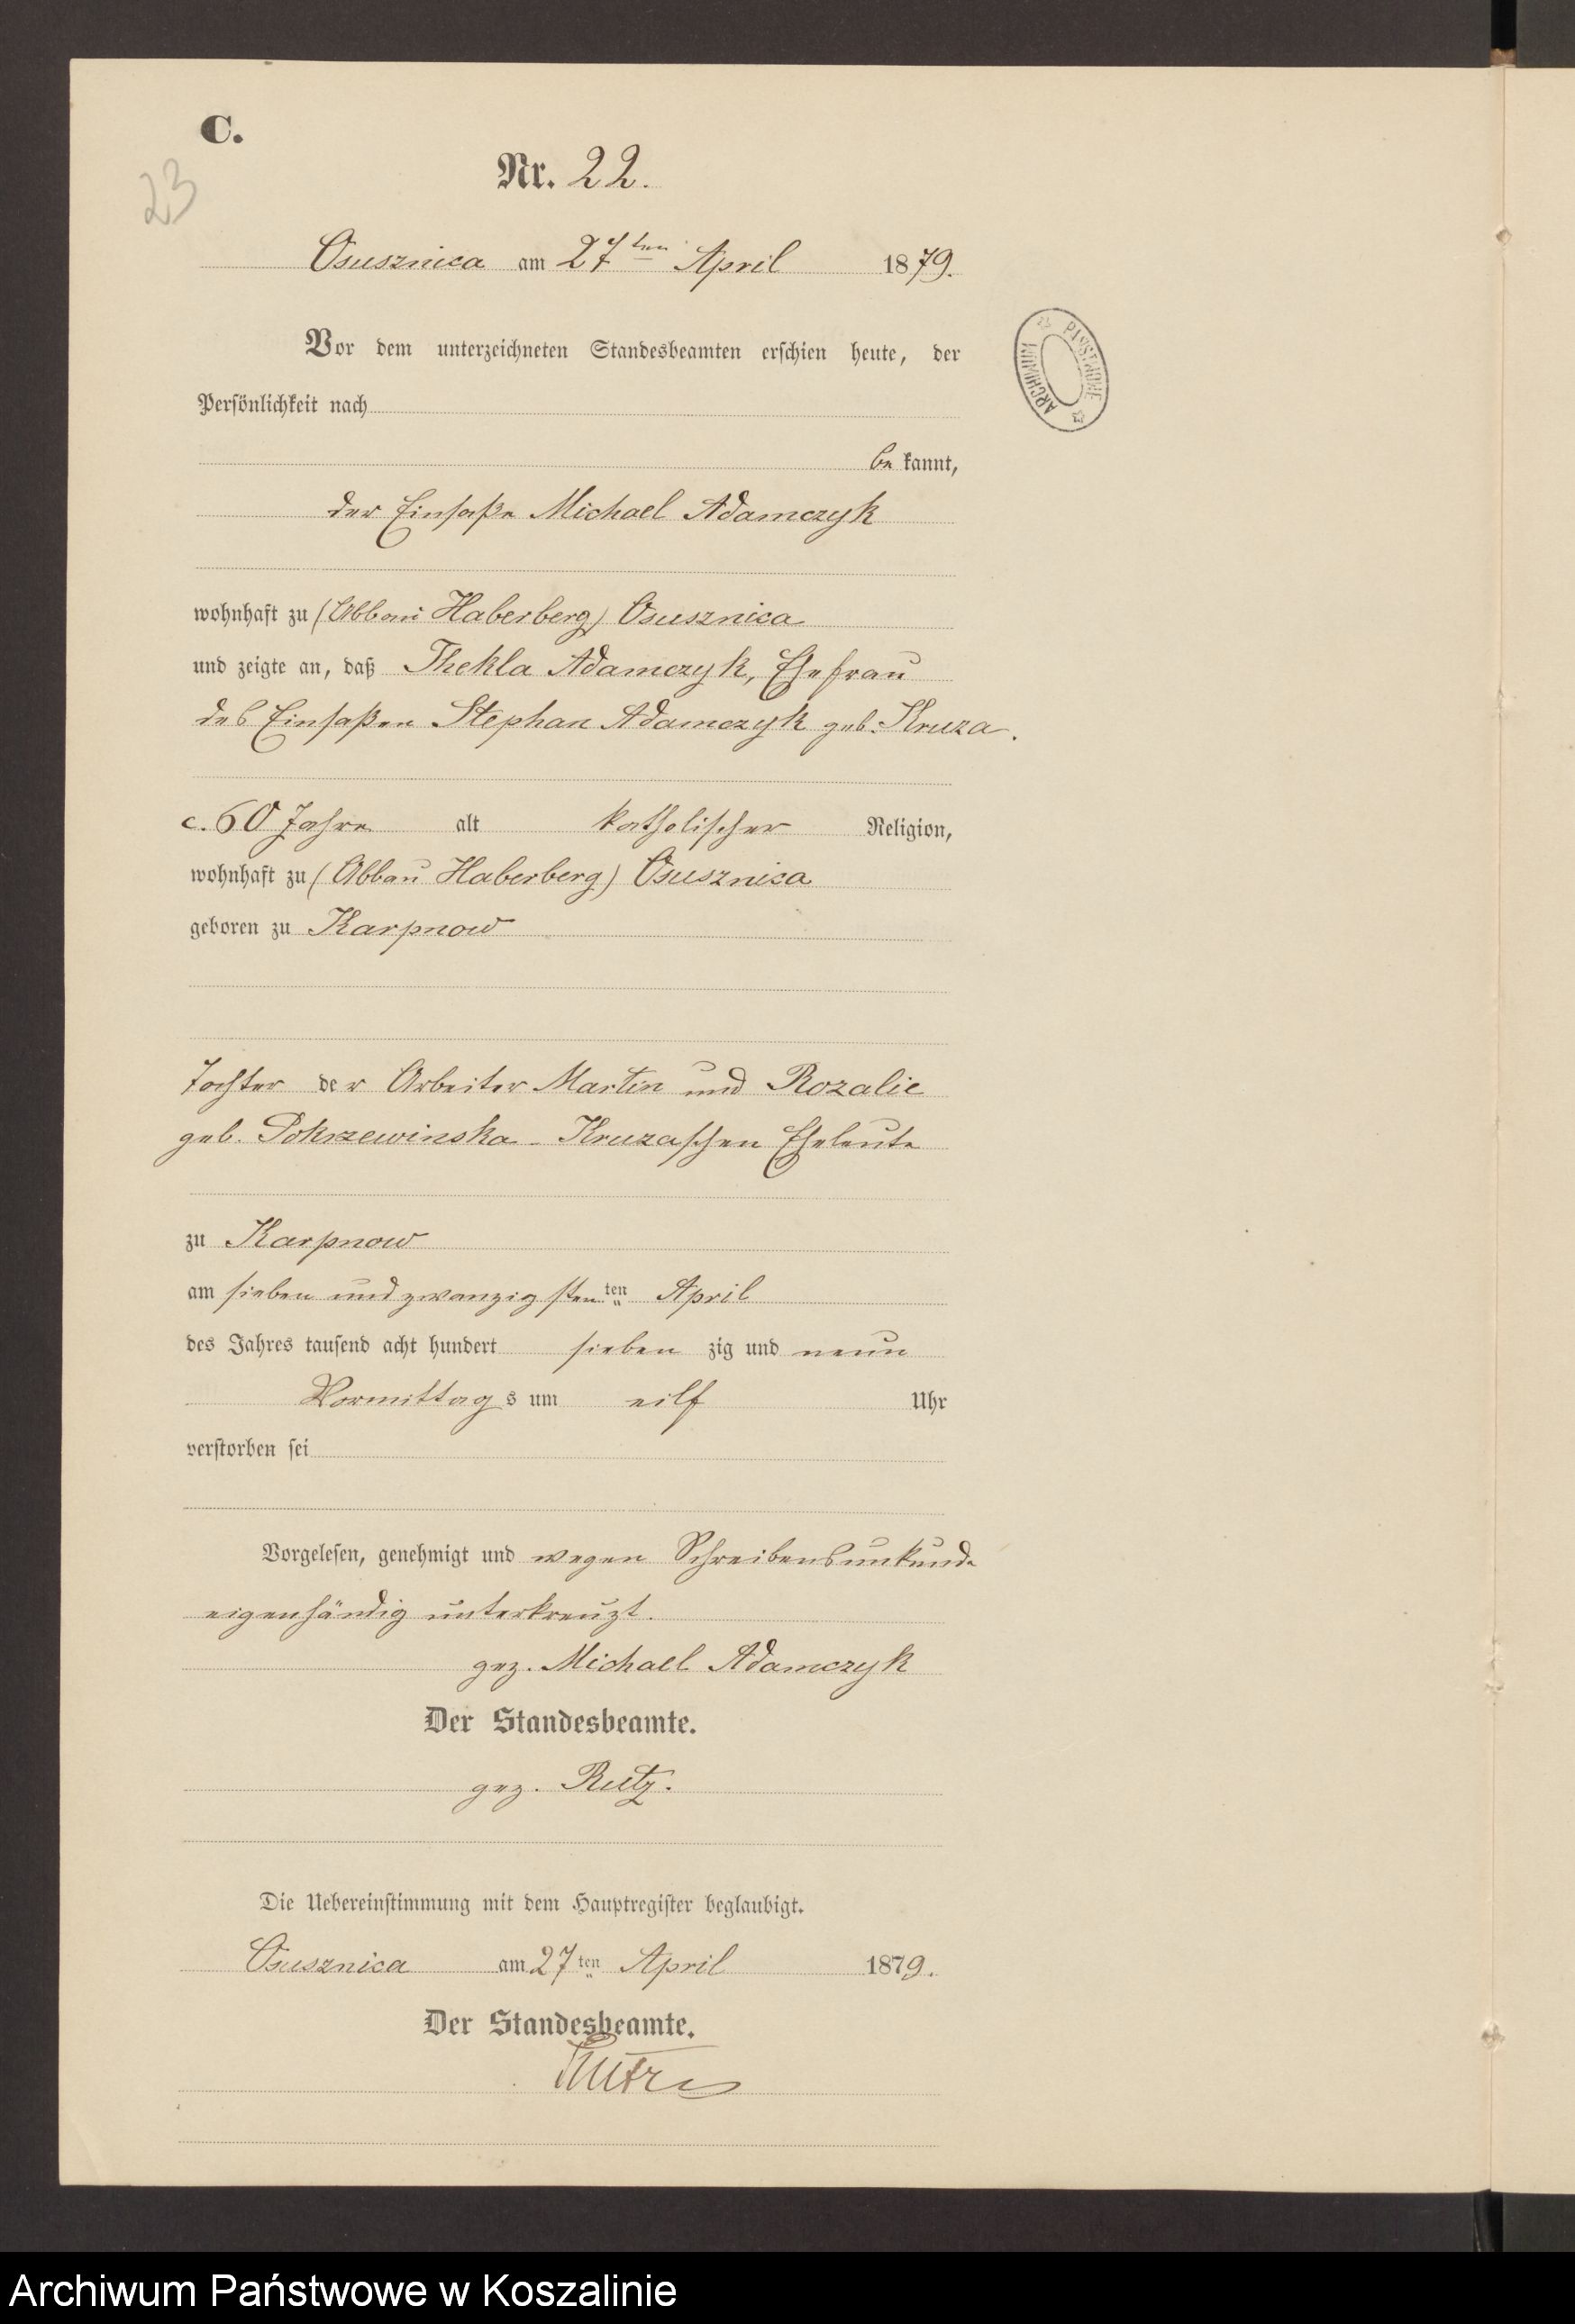 C.
23
Nr. 22.
Osusznica am 27ten April 1879.
Vor dem unterzeichneten Standesbeamten erschien heute, der
Persönlichkeit nach
be kannt,
der Einsaße Michael Adamczyk
wohnhaft zu (Abbau Haberberg) Osusznica
und zeigte an, daß Thekla Adamczyk, Ehefrau
des Einsaßen Stephan Adamczyk geb. Kruza.
c. 60 Jahre alt katholischer Religion,
wohnhaft zu (Abbau Haberberg) Osusznica
geboren zu Karpnow
Tochter der Arbeiter Martin und Rozalie
geb. Pokrzewinska - Kruzaschen Eheleute
zu Karpnow
am sieben und zwanzigsten ten April
des Jahres tausend acht hundert sieben zig und neun
Vormittag s um eilf Uhr
verstorben sei
Vorgelesen, genehmigt und wegen Schreibensunkunde
eigenhändig unterkreuzt.
gez. Michael Adamczyk
Der Standesbeamte.
gez. Rutz.
Die Uebereinstimmung mit dem Hauptregister beglaubigt.
Osusznica am 27 ten April 1879.
Der Standesbeamte.
Rutz
ARCHIWUM PAŃSTWOWE
Archiwum Państwowe w Koszalinie